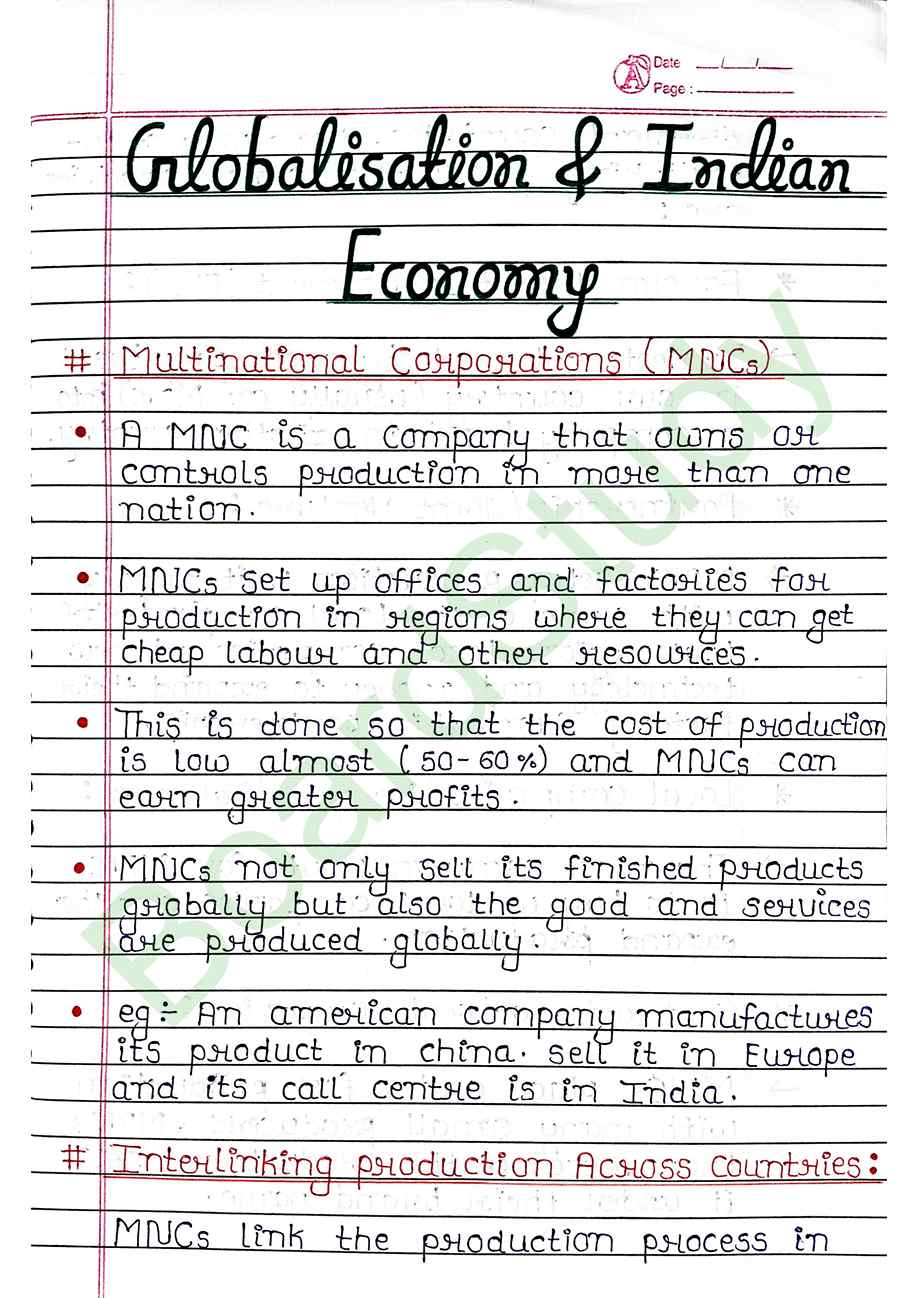 Date __/__/__
Page : ______
Globalisation & Indian
Economy
# Multinational Corporations (MNCs)
• A MNC is a company that owns or
controls production in more than one
nation.
• MNCs set up offices and factories for
production in regions where they can get
cheap labour and other resources.
• This is done so that the cost of production
is low almost (50-60%) and MNCs can
earn greater profits.
• MNCs not only sell its finished products
grobally but also the good and services
are produced globally.
• eg:- An american company manufactures
its product in china. sell it in Europe
and its call centre is in India.
# Interlinking production Across countries:
MNCs link the production process in
BoardStudy